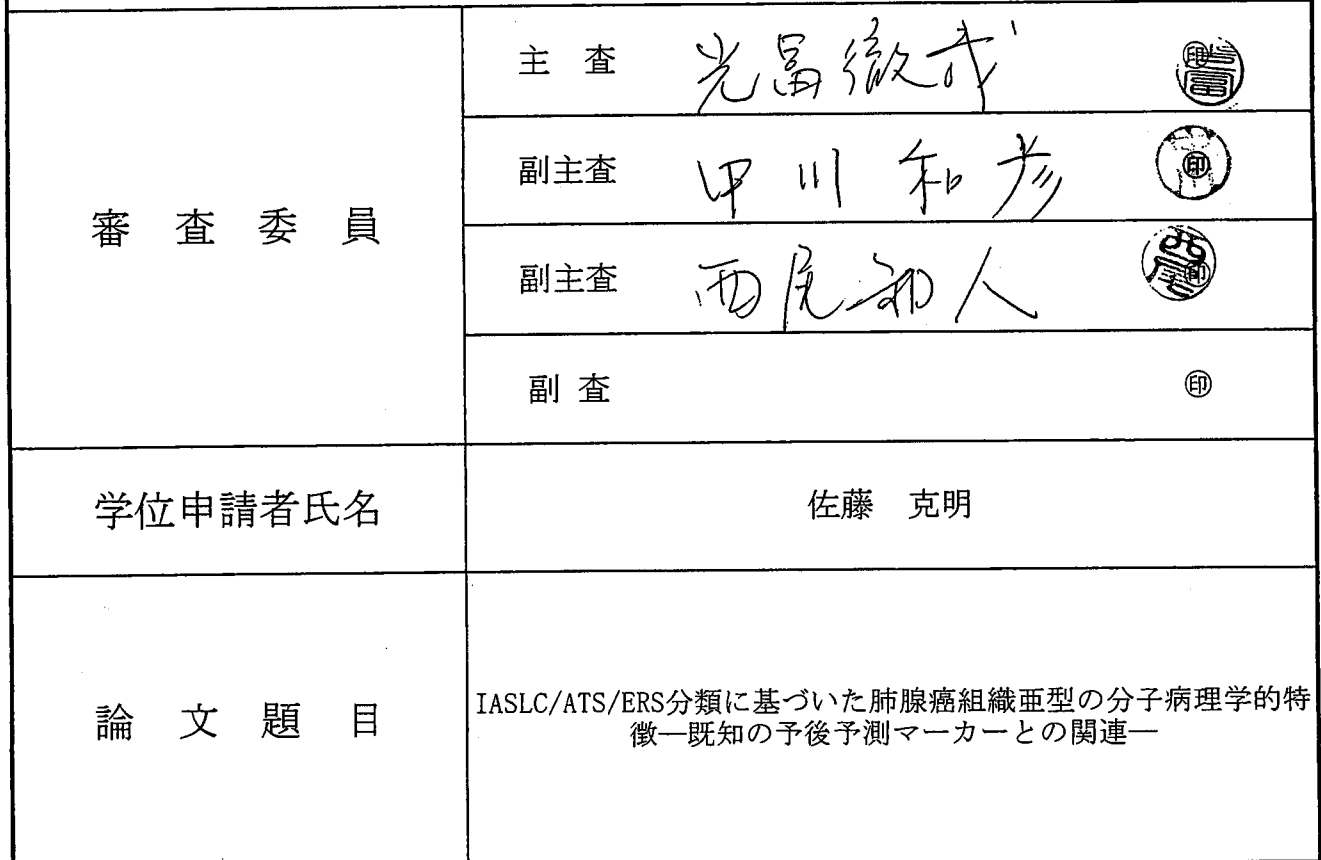 審査委員
主査 光冨徹哉 ㊞
副主査 中川和彦 ㊞
副主査 西尾和人 ㊞
副査 ㊞
学位申請者氏名 佐藤 克明
論文題目 IASLC/ATS/ERS分類に基づいた肺腺癌組織亜型の分子病理学的特
徴―既知の予後予測マーカーとの関連―